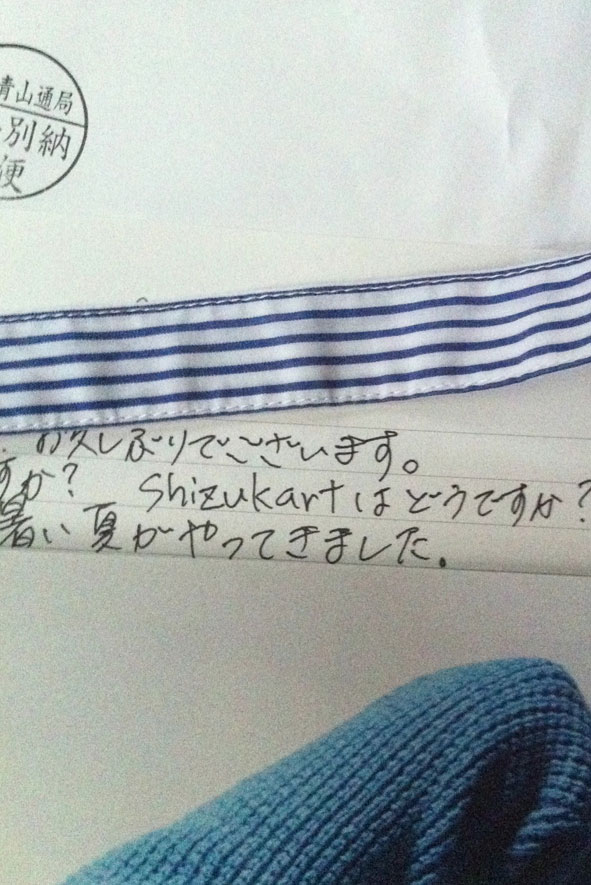 青山通局
別納
便
お久しぶりでございます。
すか? Shizukartはどうですか?
暑い夏がやってきました.